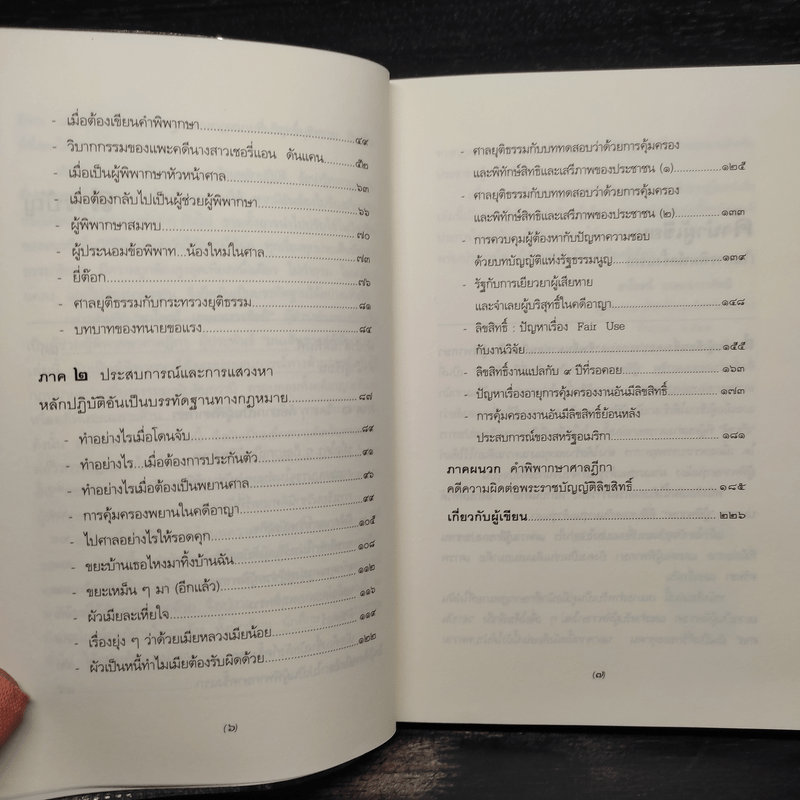 - เมื่อต้องเขียนคำพิพากษา.....๔๔
- วิบากกรรมของแพะคดีนางสาวเชอรี่แอน ดันแคน.....๕๒
- เมื่อเป็นผู้พิพากษาหัวหน้าศาล.....๖๓
- เมื่อต้องกลับไปเป็นผู้ช่วยผู้พิพากษา.....๖๖
- ผู้พิพากษาสมทบ.....๗๐
- ผู้ประนอมข้อพิพาท...น้องใหม่ในศาล.....๗๓
- ยี่ต๊อก.....๗๖
- ศาลยุติธรรมกับกระทรวงยุติธรรม.....๘๑
- บทบาทของทนายขอแรง.....๘๔
ภาค ๒ ประสบการณ์และการแสวงหา
หลักปฏิบัติอันเป็นบรรทัดฐานทางกฎหมาย.....๘๗
- ทำอย่างไรเมื่อโดนจับ.....๘๙
- ทำอย่างไร...เมื่อต้องการประกันตัว.....๙๑
- ทำอย่างไรเมื่อต้องเป็นพยานศาล.....๙๖
- การคุ้มครองพยานในคดีอาญา.....๙๙
- ไปศาลอย่างไรให้รอดคุก.....๑๐๕
- ขยะบ้านเธอไหงมาทิ้งบ้านฉัน.....๑๐๘
- ขยะเหม็น ๆ มา (อีกแล้ว).....๑๑๒
- ผัวเมียละเหี่ยใจ.....๑๑๖
- เรื่องยุ่ง ๆ ว่าด้วยเมียหลวงเมียน้อย.....๑๑๙
- ผัวเป็นหนี้ทำไมเมียต้องรับผิดด้วย.....๑๒๒
(๖)
- ศาลยุติธรรมกับบททดสอบว่าด้วยการคุ้มครอง
และพิทักษ์สิทธิและเสรีภาพของประชาชน (๑).....๑๒๕
- ศาลยุติธรรมกับบททดสอบว่าด้วยการคุ้มครอง
และพิทักษ์สิทธิและเสรีภาพของประชาชน (๒).....๑๓๓
- การควบคุมผู้ต้องหากับปัญหาความชอบ
ด้วยบทบัญญัติแห่งรัฐธรรมนูญ.....๑๓๙
- รัฐกับการเยียวยาผู้เสียหาย
และจำเลยผู้บริสุทธิ์ในคดีอาญา.....๑๔๘
- ลิขสิทธิ์ : ปัญหาเรื่อง Fair Use
กับงานวิจัย.....๑๕๕
- ลิขสิทธิ์งานแปลกับ ๙ ปีที่รอคอย.....๑๖๓
- ปัญหาเรื่องอายุการคุ้มครองงานอันมีลิขสิทธิ์.....๑๗๓
- การคุ้มครองงานอันมีลิขสิทธิ์ย้อนหลัง
ประสบการณ์ของสหรัฐอเมริกา.....๑๘๑
ภาคผนวก คำพิพากษาศาลฎีกา
คดีความผิดต่อพระราชบัญญัติลิขสิทธิ์.....๑๘๕
เกี่ยวกับผู้เขียน.....๒๒๖
(๗)